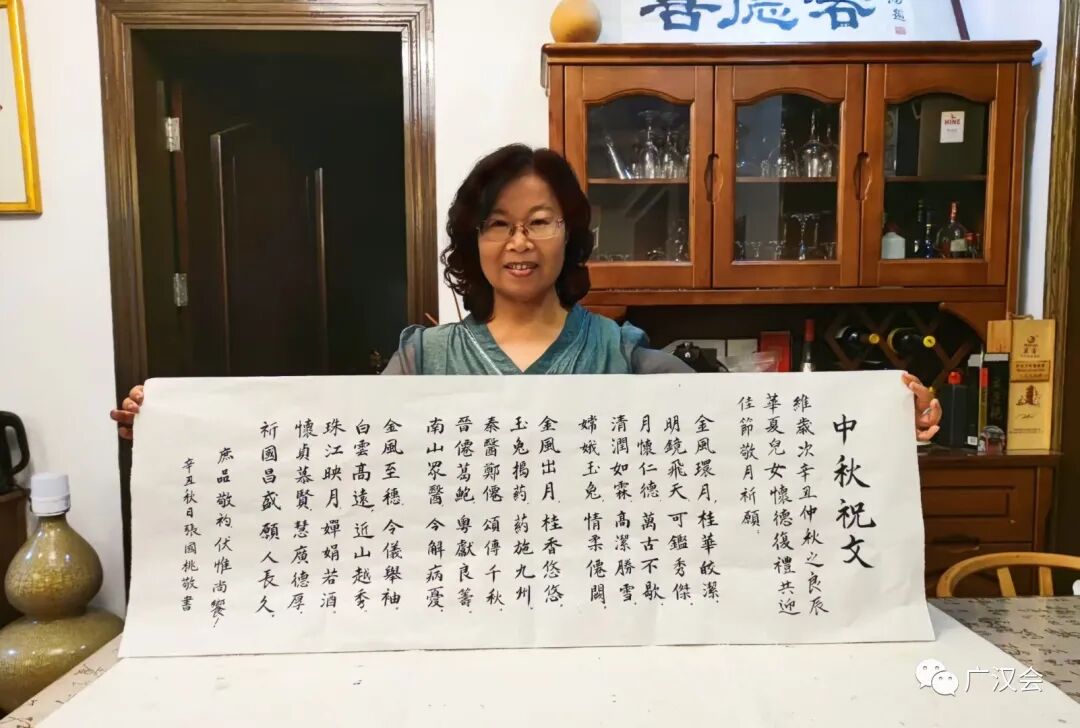 中秋祝文
維歲次辛丑仲秋之良辰
華夏兒女懷德復禮共迎
佳節敬月祈願：
金風環月，桂華皎潔，
明鏡飛天，可鑑秀傑，
月懷仁德，萬古不歇，
清潤如霖，高潔勝雪，
嫦娥玉兔，情柔僊闕。
金風出月，桂香悠悠，
玉兔搗葯，葯施九州，
秦醫鄭僊，頌傳千秋，
晉僊葛鮑，粵獻良籌，
南山眾醫，今解病憂。
金風至穗，令儀舉袖，
白雲高遠，近山越秀，
珠江映月，嬋娟若酒，
懷貞慕賢，慧廣德厚，
祈國昌盛，願人長久。
庶品敬礿伏惟尚饗！
辛丑秋日張國桃敬書
HINE
广汉会